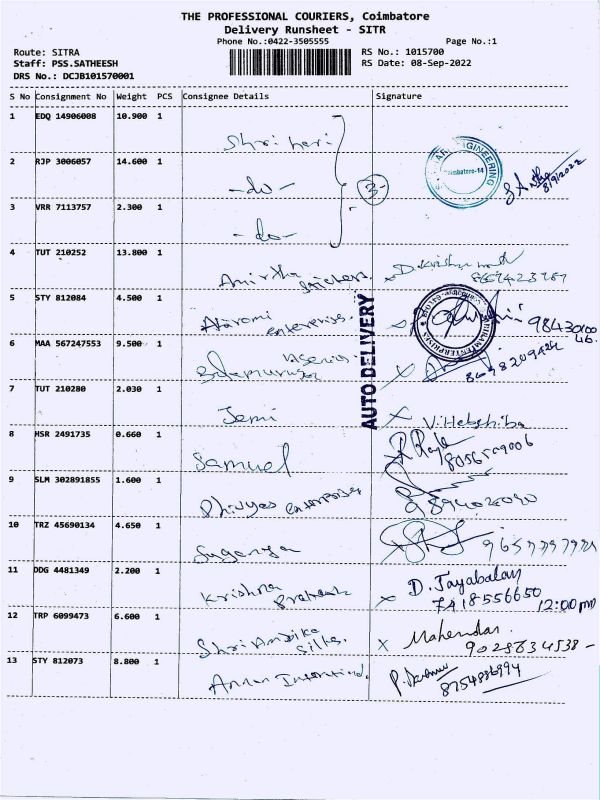 THE PROFESSIONAL COURIERS, Coimbatore
Delivery Runsheet - SITR
Phone No.:0422-3505555 Page No.:1
Route: SITRA RS No.: 1015700
Staff: PSS.SATHEESH RS Date: 08-Sep-2022
DRS No.: DCJB101570001
S No Consignment No Weight PCS Consignee Details Signature
1 EDQ 14906008 10.900 1 Shri hari
2 RJP 3006057 14.600 1 -do- 3 8/9/2022
3 VRR 7113757 2.300 1 -do-
ENGINEERING
Coimbatore-14
4 TUT 210252 13.800 1 Amirtha
5 STY 812084 4.500 1 enterprise.
AUTO DELIVERY
6 MAA 567247553 9.500 1
7 TUT 210280 2.030 1 Jemi X V. Hebshiba
8 HSR 2491735 0.660 1 Samuel
9 SLM 302891855 1.600 1 Dhivyas enterprises
10 TRZ 45690134 4.650 1 Suganya
11 DDG 4481349 2.200 1 Krishna Prakash x D. Jayabalan
7418556650
12:00 pm
12 TRP 6099473 6.600 1 Shri Ambika Silks. X Mahendar.
9028634538 -
13 STY 812073 8.800 1 8754886994